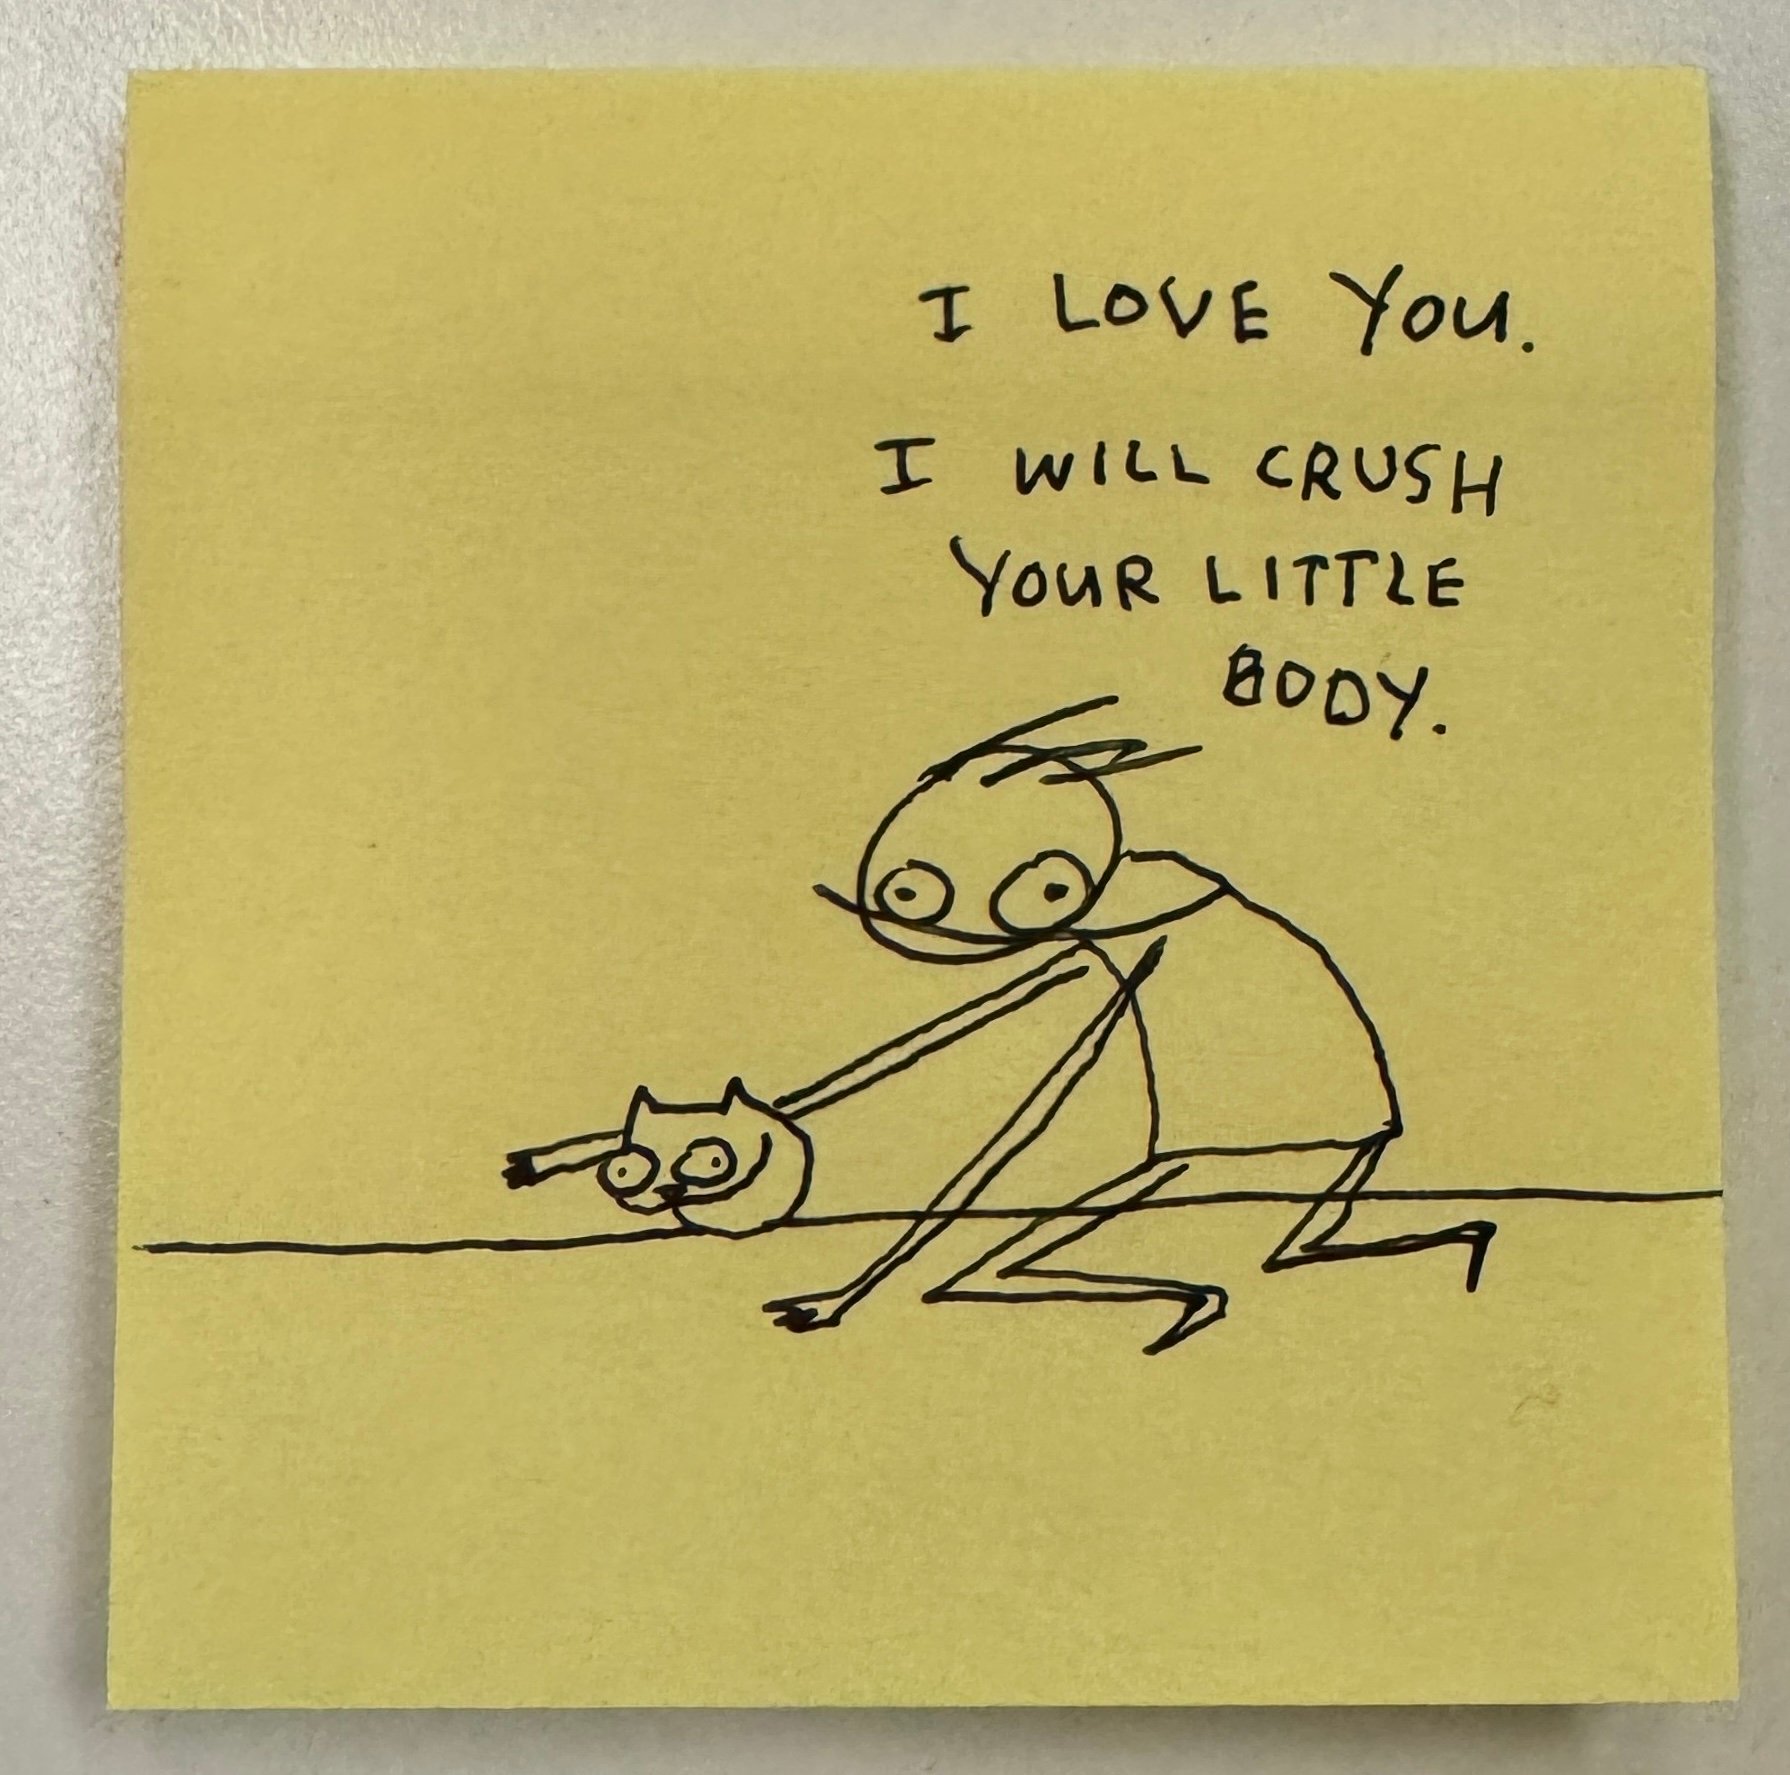 I LOVE YOU.
I WILL CRUSH
YOUR LITTLE
BODY.